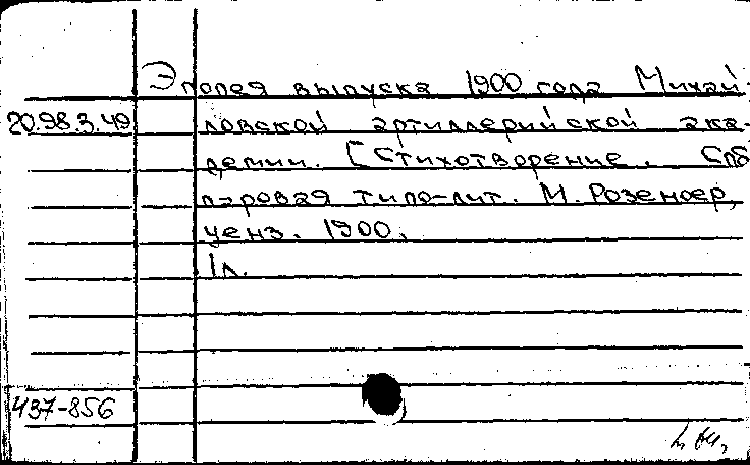 Эпопея выпуска 1900 года Михай-
20.98.3.49 ловской артиллерийской ака-
демии. [Стихотворение. Спб
паровая типо-лит. М. Розеноер,
ценз. 1900.
1л.
437-856